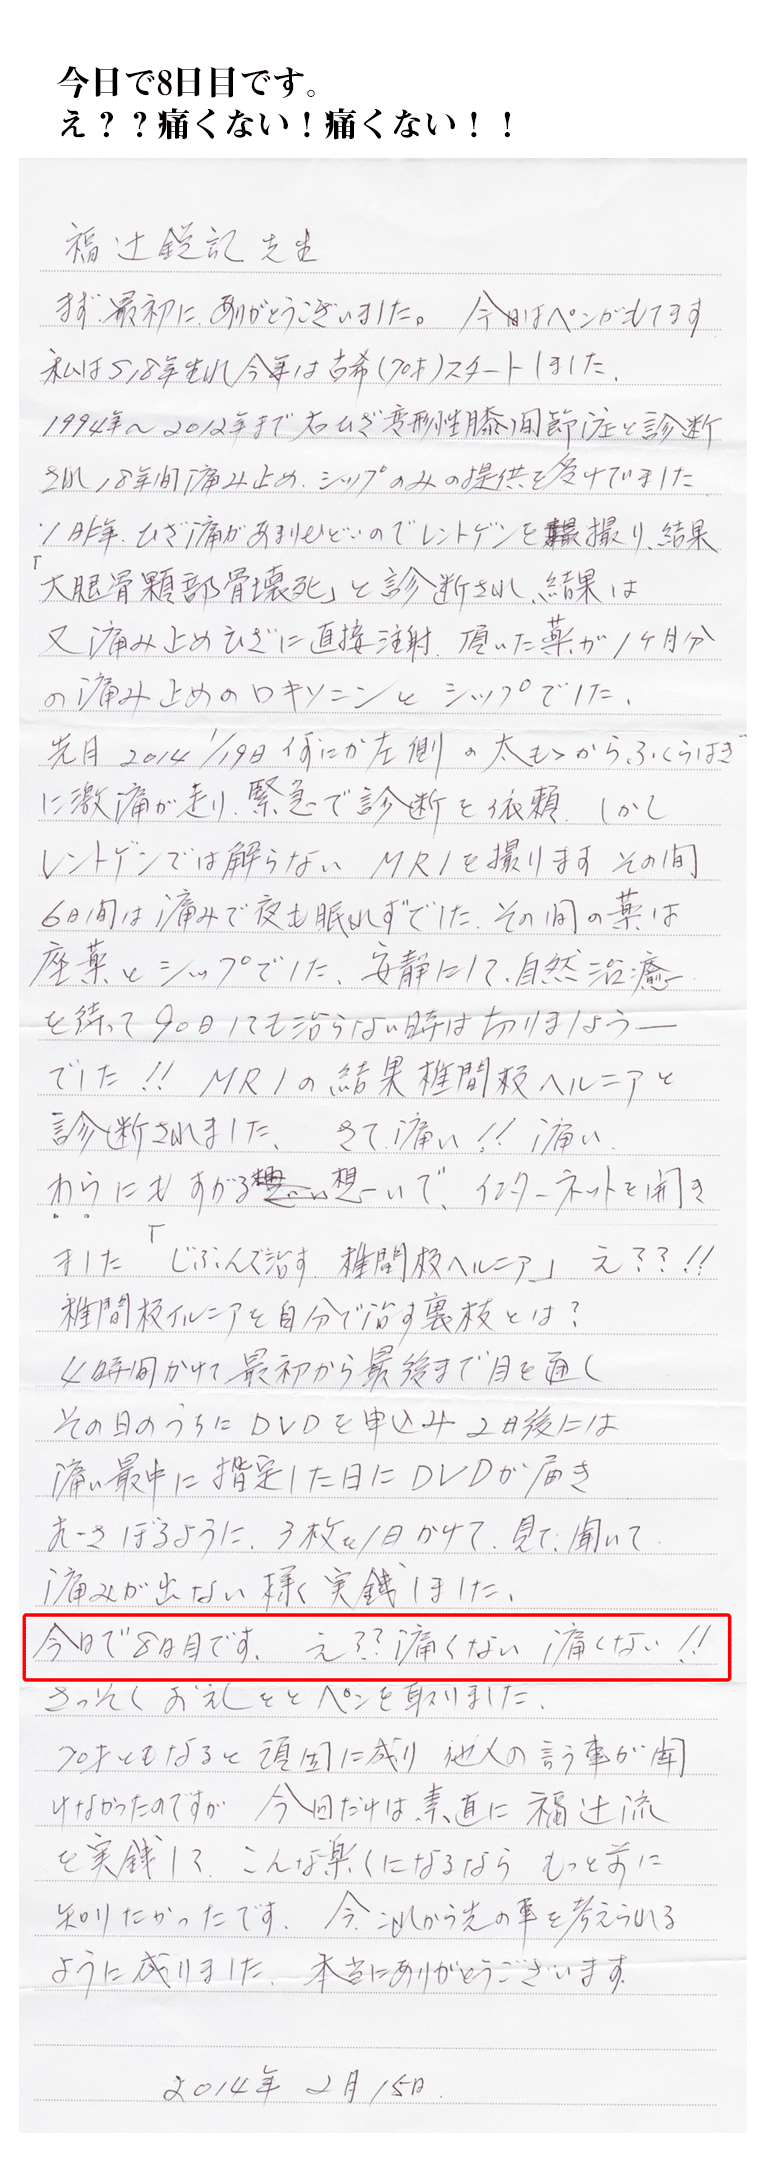 今日で8日目です。
え？？痛くない！痛くない！！
福辻鋭記先生
まず最初に、ありがとうございました。今日はペンがもてます
私はS18年生れ今年は古希(70才)スタートしました、
1994年～2012年まで右ひざ変形性膝関節症と診断
され18年間痛み止め、シップのみの提供を受けていました
1昨年、ひざ痛があまりひどいのでレントゲンを撮り、結果
「大腿骨顆部骨壊死」と診断され、結果は
又痛み止めひざに直接注射、頂いた薬が1ヶ月分
の痛み止めのロキソニンと シップでした、
先月 2014 1/19日 左側の太ももからふくらはぎ
に激痛が走り、緊急で診断を依頼、しかし
レントゲンでは解らない MRIを撮ります その間
6日間は痛みで夜も眠れずでした、その間の薬は
座薬とシップでした、安静にして、自然治癒
を待って90日しても治らない時は切りましょうー
でした!! MRIの結果椎間板ヘルニアと
診断されました、 さて痛い!! 痛い、
わらにもすがる想いで、インターネットを開き
ました「じぶんで治す 椎間板ヘルニア」 え??!!
椎間板ヘルニアを自分で治す裏技とは?
4時間かけて最初から最後まで目を通し
その日のうちにDVDを申込み 2日後には
痛い最中に指定した日にDVDが届き
むさぼるように、3枚を1日かけて、見て、聞いて
痛みが出ない様に実銭しました、
今日で8日目です、 え??痛くない 痛くない!!
さっそく ペンを取りました、
70才ともなると頑固に成り 他人の言う事が聞
けなかったのですが 今回だけは、素直に福辻流
を実銭して、こんな楽になるなら もっと前に
知りたかったです、 今、これから先の事を考えられる
ように成りました、本当にありがとうございます
2014年 2月15日